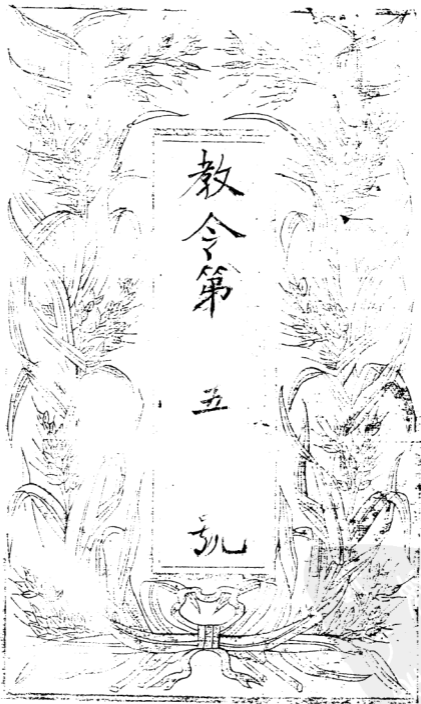 教令第五號